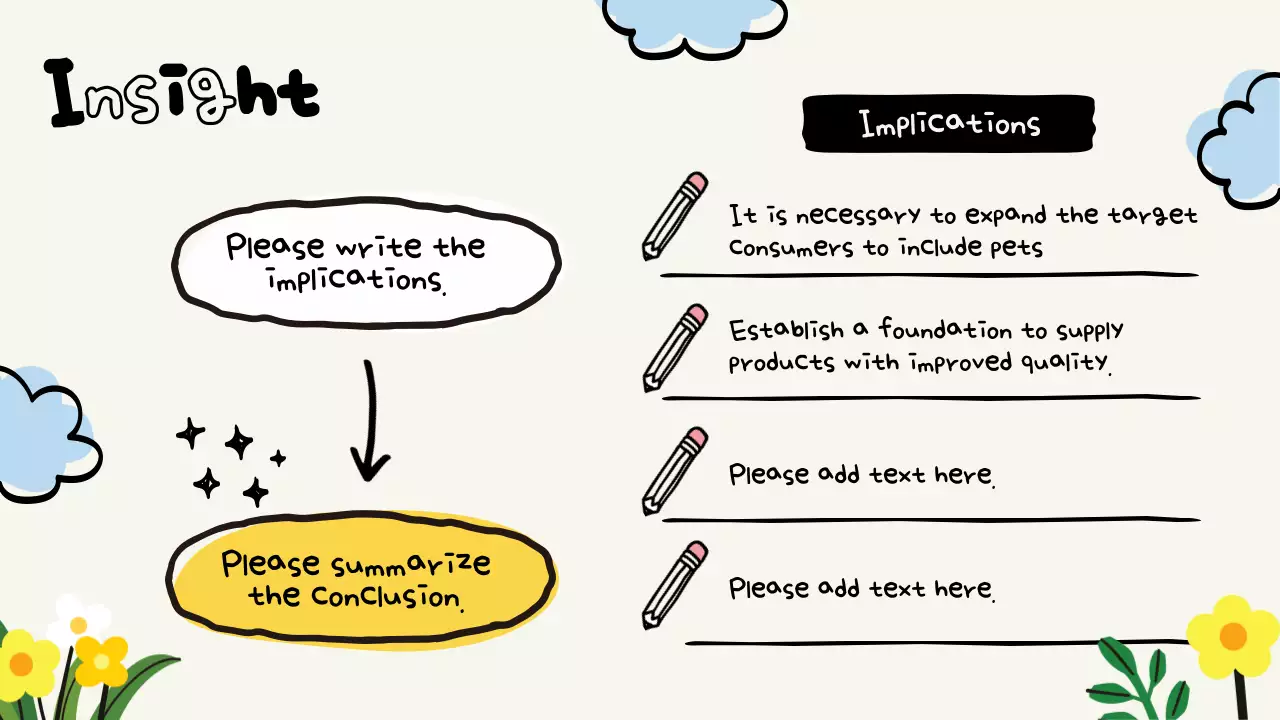 Insight
Please write the
implications.
Please summarize
the conclusion.
Implications
It is necessary to expand the target
consumers to include pets
Establish a foundation to supply
products with improved quality.
Please add text here.
Please add text here.